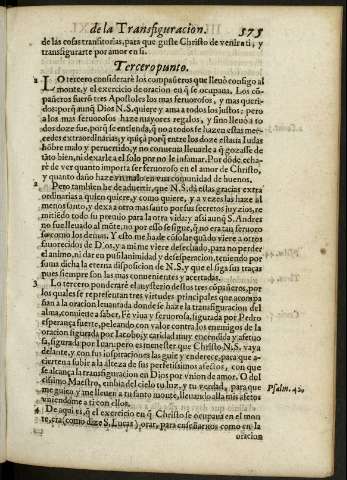 de la Transfiguracion. 575
de las cosas transitorias, para que guste Christo de venir a ti, y
transfigurarte por amor en si.
Tercero punto.
1 LO tercero considerarè los compañeros que lleuò consigo al
monte, y el exercicio de oracion en q̃ se ocupana. Los cõ-
pañeros fuerõ tres Apostoles los mas feruorosos, y mas queri-
dos: porq̃ aunq̃ Dios N.S. quiere y ama a todos los justos; pero
a los mas feruorosos haze mayores regalos, y sino lleuò a to
dos doze fue, porq̃ se entienda, q̃ no a todos se hazen estas mer-
cedes extraordinarias; y quiçà porq̃ entre los doze estaua Iudas
hõbre malo y peruertido, y no conuenia lleuarle a q̃ gozasse de
tãto bien, ni dexarle a el solo por no le infamar. Por dõde echa-
rè de ver quanto importa ser feruoroso en el amor de Christo,
y quanto daño haze vn malo en vna comunidad de buenos.
2 Pero tambien he de aduertir, que N.S. dà estas gracias extra
ordinarias a quien quiere, y como quiere, y a vezes las haze al
menos santo, y dexa a otro mas santo por sus secretos juyzios, re
mitiẽdo todo su premio para la otra vida: y assi aunq̃ S. Andres
no fue lleuado al mõte, no por esso se sigue, q̃ no era tan feruoro
so como los demas. Y esto me ha de cõsolar quãdo viere a otros
fauorecidos de Dios, y a mi me viere desechado, para no perder
el animo, ni dar en pusilanimidad y desesperacion, teniendo por
suma dicha la eterna disposicion de N.S, y que el siga sus traças
pues siempre son las mas conuenientes y acertadas.
3 Lo tercero ponderarè el mysterio destos tres cõpañeros, por
los quales se representan tres virtudes principales que acompa
ñan a la oracion leuantada donde se haze la transfiguracion del
alma, conuiene a saber, Fè viua y feruorosa, figurada por Pedro
esperança fuerte, peleando con valor contra los enemigos de la
oracion figurada por Iacobo; y caridad muy encendida y afetuo
sa, figurada por Iuan; pero es menester que Christo N.S. vaya
delante, y con sus inspiraciones las guie y enderece, para que a-
cierten a subir a la alteza de sus perfetissimos afectos, con que
se alcança la transfiguracion en Dios por vnion de amor. O dul
cissimo Maestro, embia del cielo tu luz, y tu verdad, para que Psalm. 42.
me guien, y me lleuen a tu santo monte, lleuando allà mis afetos
vniendome a ti con ellos.
4 De aqui es, q̃ el exercicio en q̃ Christo se ocupaua en el mon
te, era (como dize S. Lucas) orar, para enseñarnos como en la
oracion